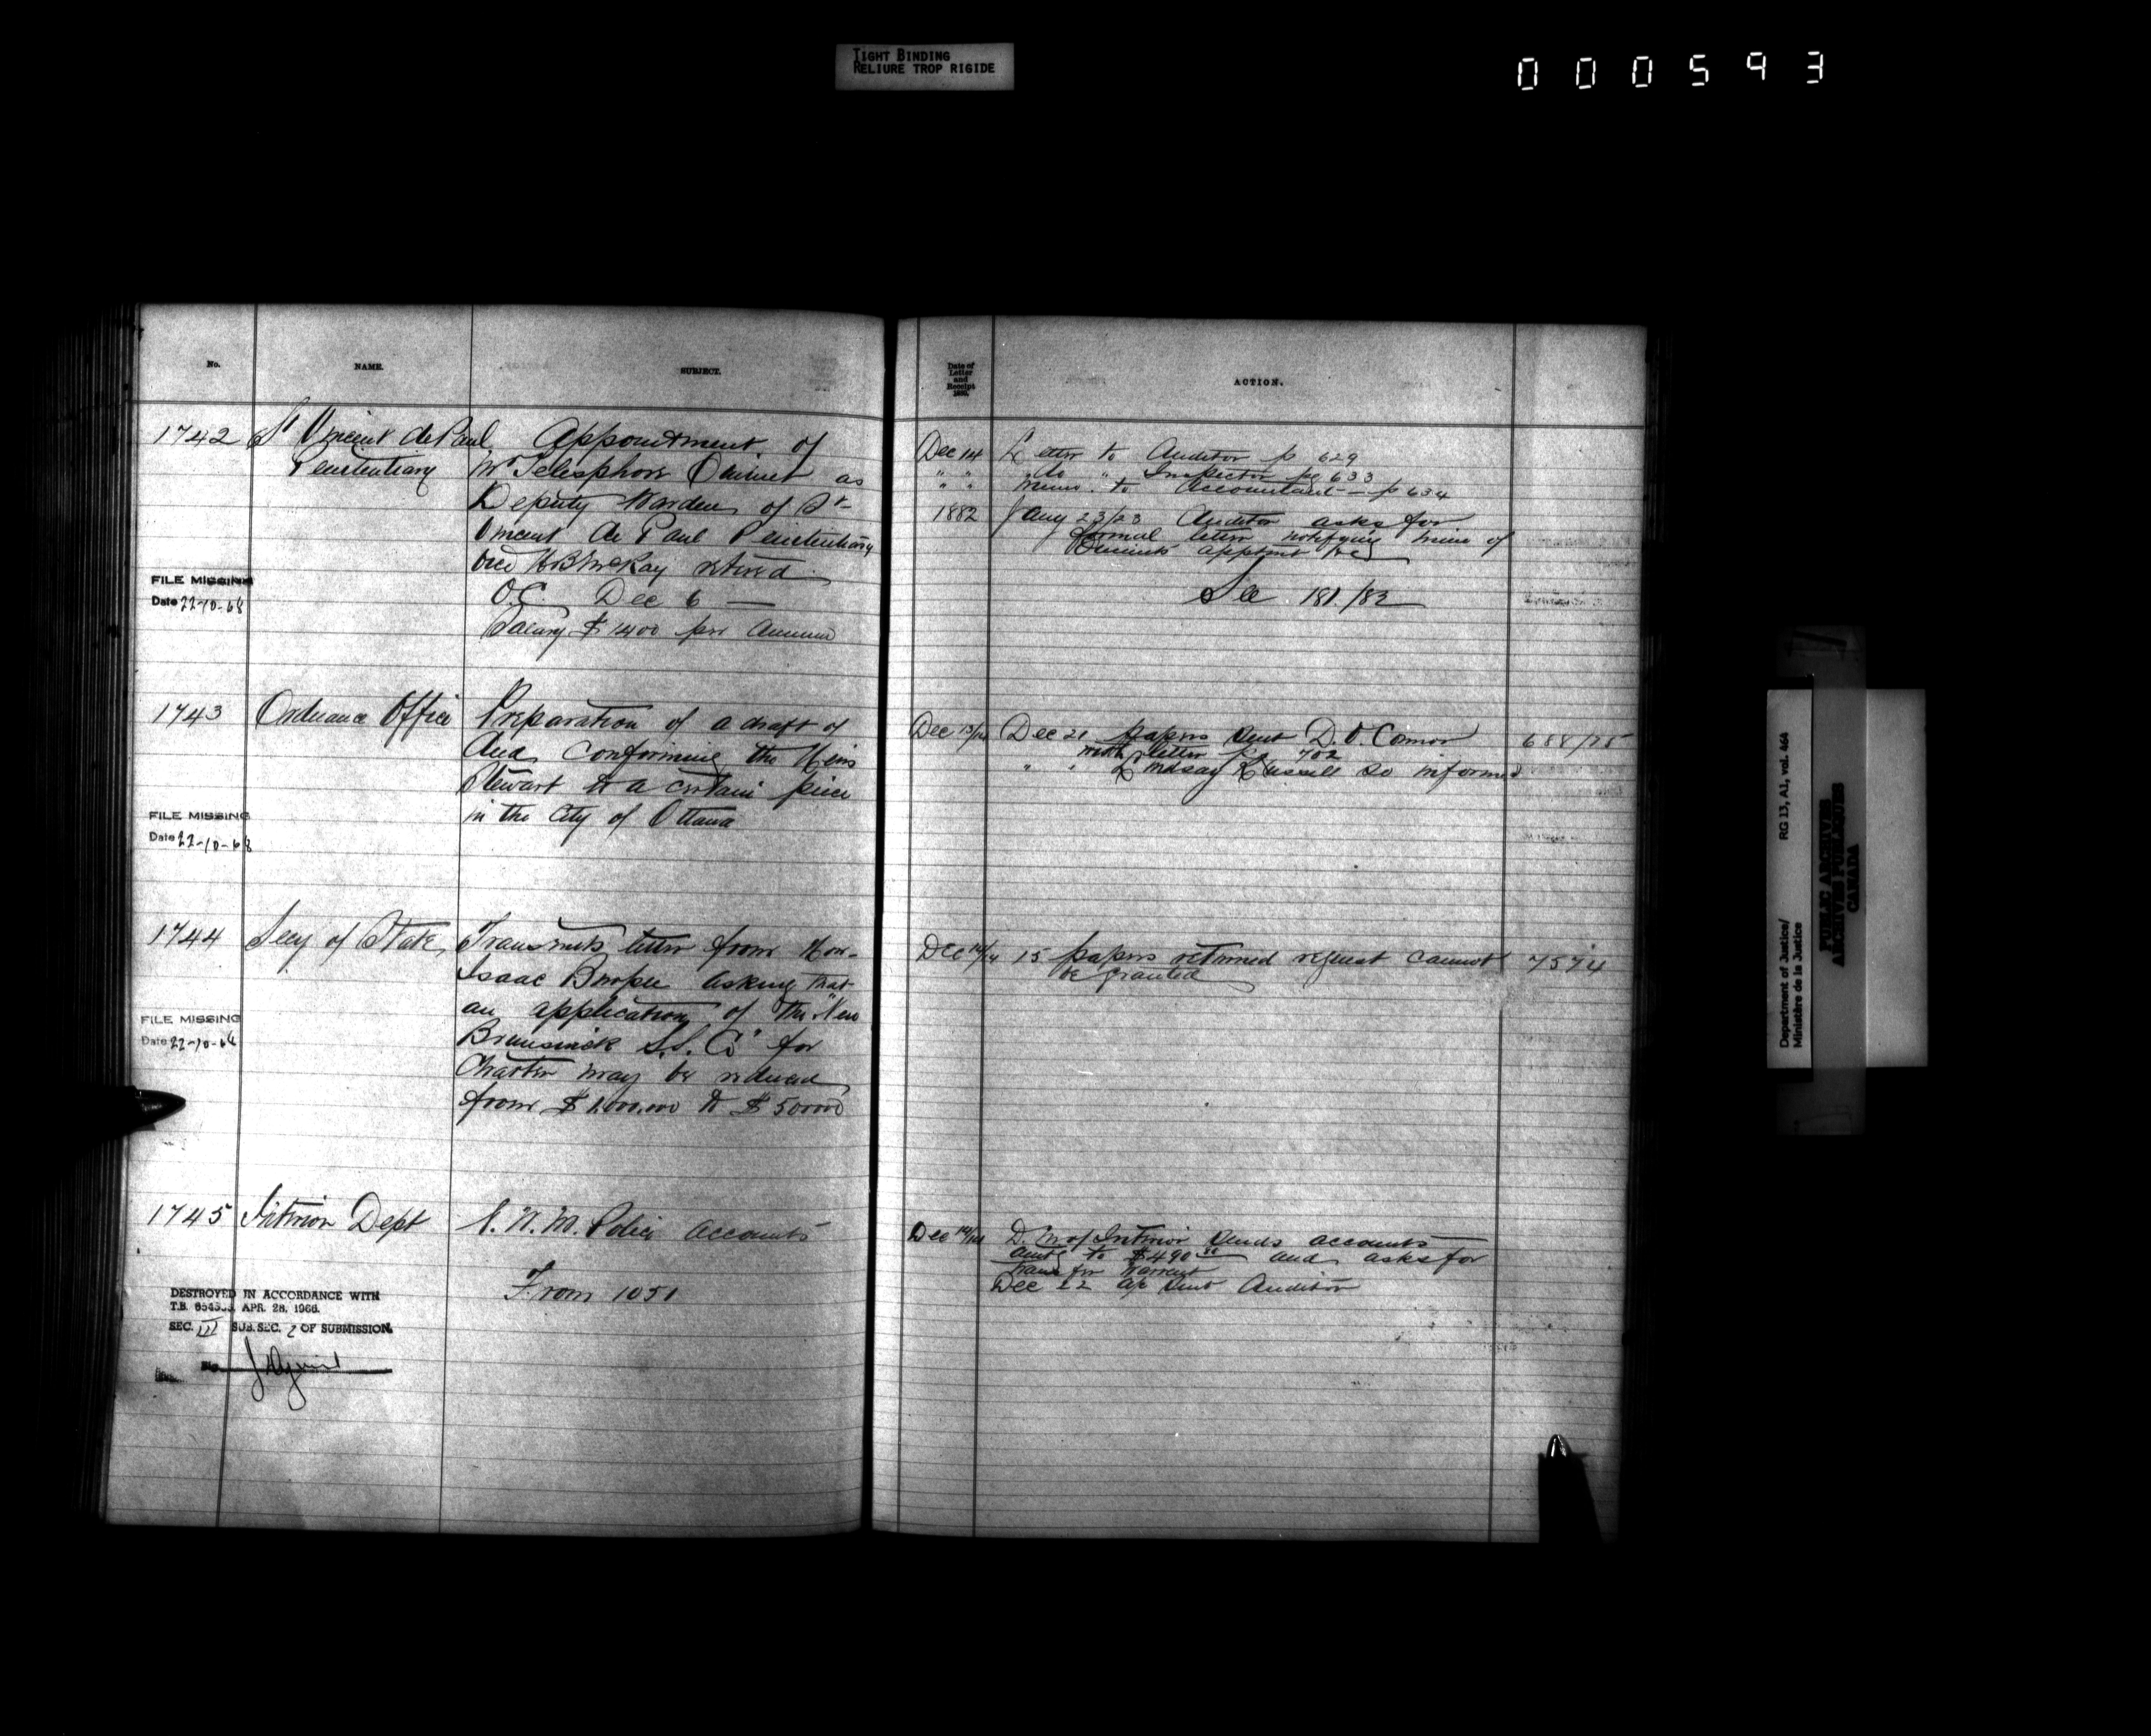 TIGHT BINDING
RELIURE TROP RIGIDE
000593
No.
NAME.
SUBJECT.
1742 St Vincent de Paul Appointment of
Penitentiary Mr Telesphore Ouimet as
Deputy Warden of St
Vincent de Paul Penitentiary
vice McKay retired
FILE MISSING
Date 22-10-68
O.C. Dec 6 —
Salary $1400 per annum
1743 Ordnance Office Preparation of a draft of
deed confirming the Heirs
Stewart to a certain piece
in the City of Ottawa
FILE MISSING
Date 22-10-68
1744 Secy of State Transmits letter from Hon.
Isaac Burpee asking that
an application of the "New
Brunswick S.S. Co" for
Charter may be reduced
from $1,000,000 to $500000
FILE MISSING
Date 22-10-68
1745 Interior Dept N.W.M. Police accounts
From 1051
DESTROYED IN ACCORDANCE WITH
T.B. APR. 28, 1966.
SEC. III SUB. SEC. 2 OF SUBMISSION.
Date of
Letter
and
Receipt
ACTION.
Dec 14 Letter to Auditor p 629
" " do " Inspector pg 633
" " Memo. to Accountant — p 634
1882 Jany 23/23 Auditor asks for
formal letter notifying him of
Ouimets apptmt &c
See 181./82
Dec 13/14 Dec 21 papers sent D. O'Connor 688/75
with letter pg 702
" " Lindsay Russell so informed
Dec 14/14 15 papers returned request cannot 7574
be granted
Dec 14/14 D. M of Interior sends accounts
amtg to $490 and asks for
warrant
Dec 22 sent Auditor
Department of Justice/
Ministère de la Justice
RG 13, A1, vol. 464
PUBLIC ARCHIVES
ARCHIVES PUBLIQUES
CANADA